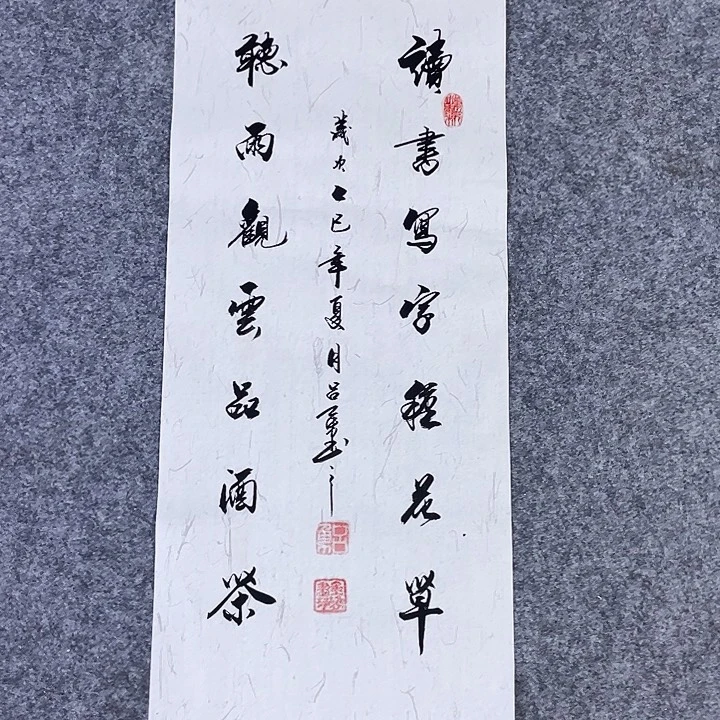 讀書寫字種花草
聽雨觀雲品酒茶
歲次乙巳年夏月呂